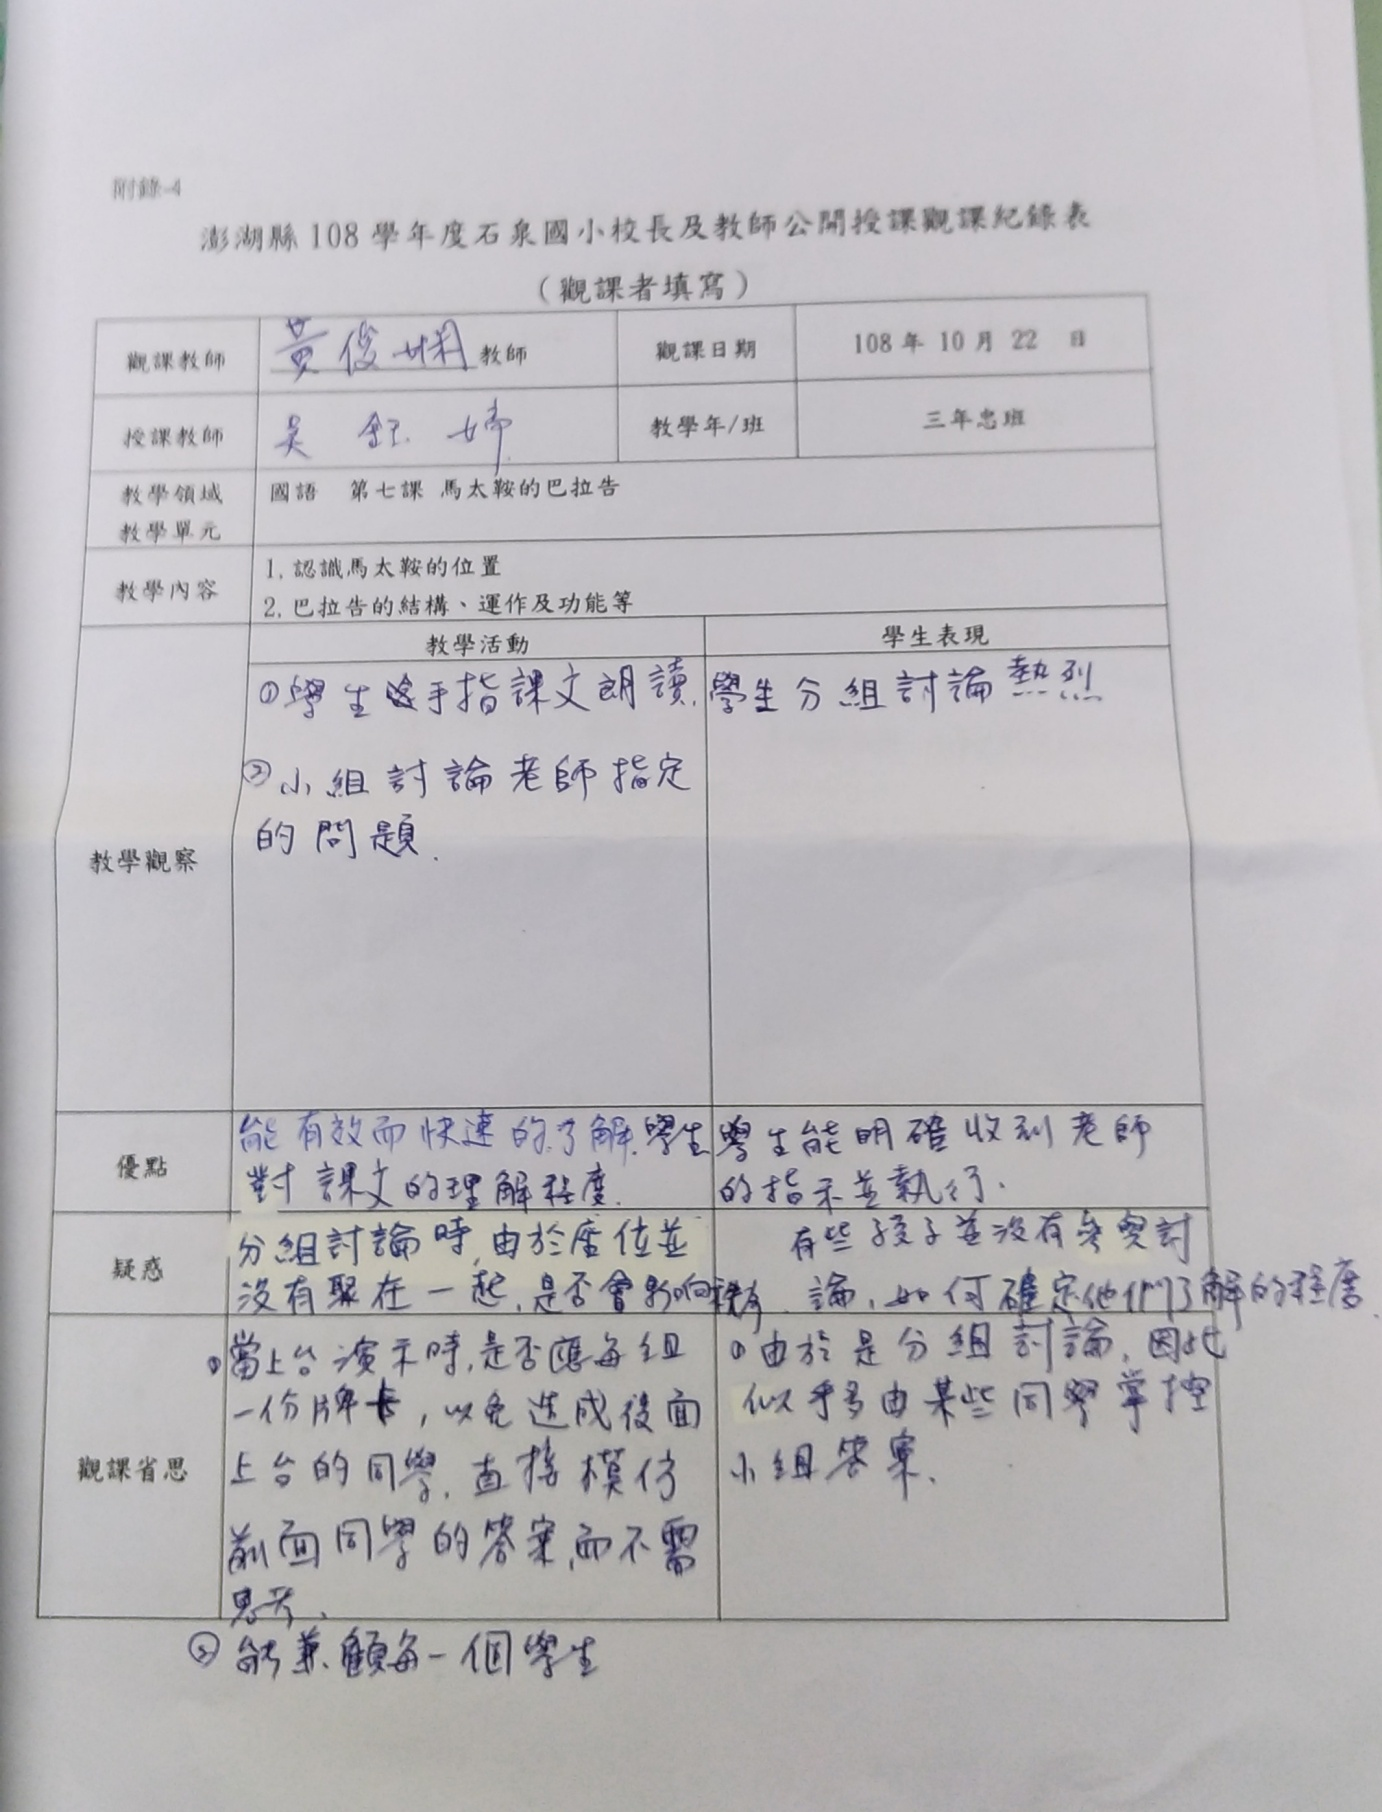 附錄-4
澎湖縣 108 學年度石泉國小校長及教師公開授課觀課紀錄表
（觀課者填寫）
觀課教師 黃俊嫻教師 觀課日期 108 年 10 月 22 日
授課教師 吳 鈺 婷 教學年/班 三年忠班
教學領域 國語 第七課 馬太鞍的巴拉告
教學單元
教學內容
1. 認識馬太鞍的位置
2. 巴拉告的結構、運作及功能等
教學觀察
教學活動 學生表現
①學生手指課文朗讀. 學生分組討論熱烈
②小組討論老師指定
的問題.
優點
能有效而快速的了解學生
對課文的理解程度.
學生能明確收到老師
的指示並執行.
疑惑
分組討論時,由於座位並
沒有聚在一起,是否會影響
有些孩子並沒有參與討
論,如何確定他們了解的程度.
觀課省思
①當上台演示時,是否應每組
一份牌卡,以免造成後面
上台的同學,直接模仿
前面同學的答案,而不需
思考.
②能兼顧每一個學生
①由於是分組討論,因此
似乎多由某些同學掌控
小組答案.